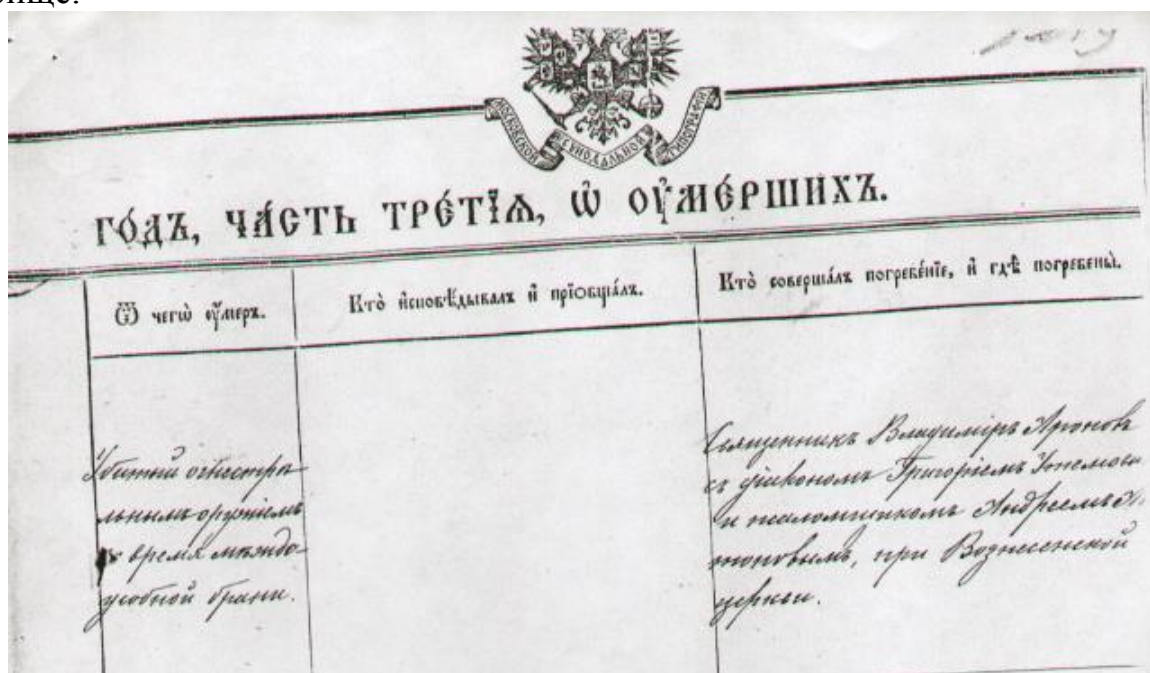 МОСКОВСКОЙ СѴНОДАЛЬНОЙ ТИПОГРАФІИ
ГО́ДЪ, ЧА́СТЬ ТРЕ́ТЇѦ, Ѡ҆ ОУ҆МЕ́РШИХЪ.
Ѿ чегѡ̀ ᲂу҆́мерх.
Кто̀ и҆сповѣ́дывалъ и҆ прїѻбща́лъ.
Кто̀ соверша́лъ погребе́нїе, и҆ гдѣ̀ погребены̀.
Убитый огнестре-
льнымъ оружіемъ
во время междо-
усобной брани.
Священникъ Владиміръ
съ діакономъ Григоріемъ
и псаломщикомъ Андреемъ
при Вознесенской
церкви.